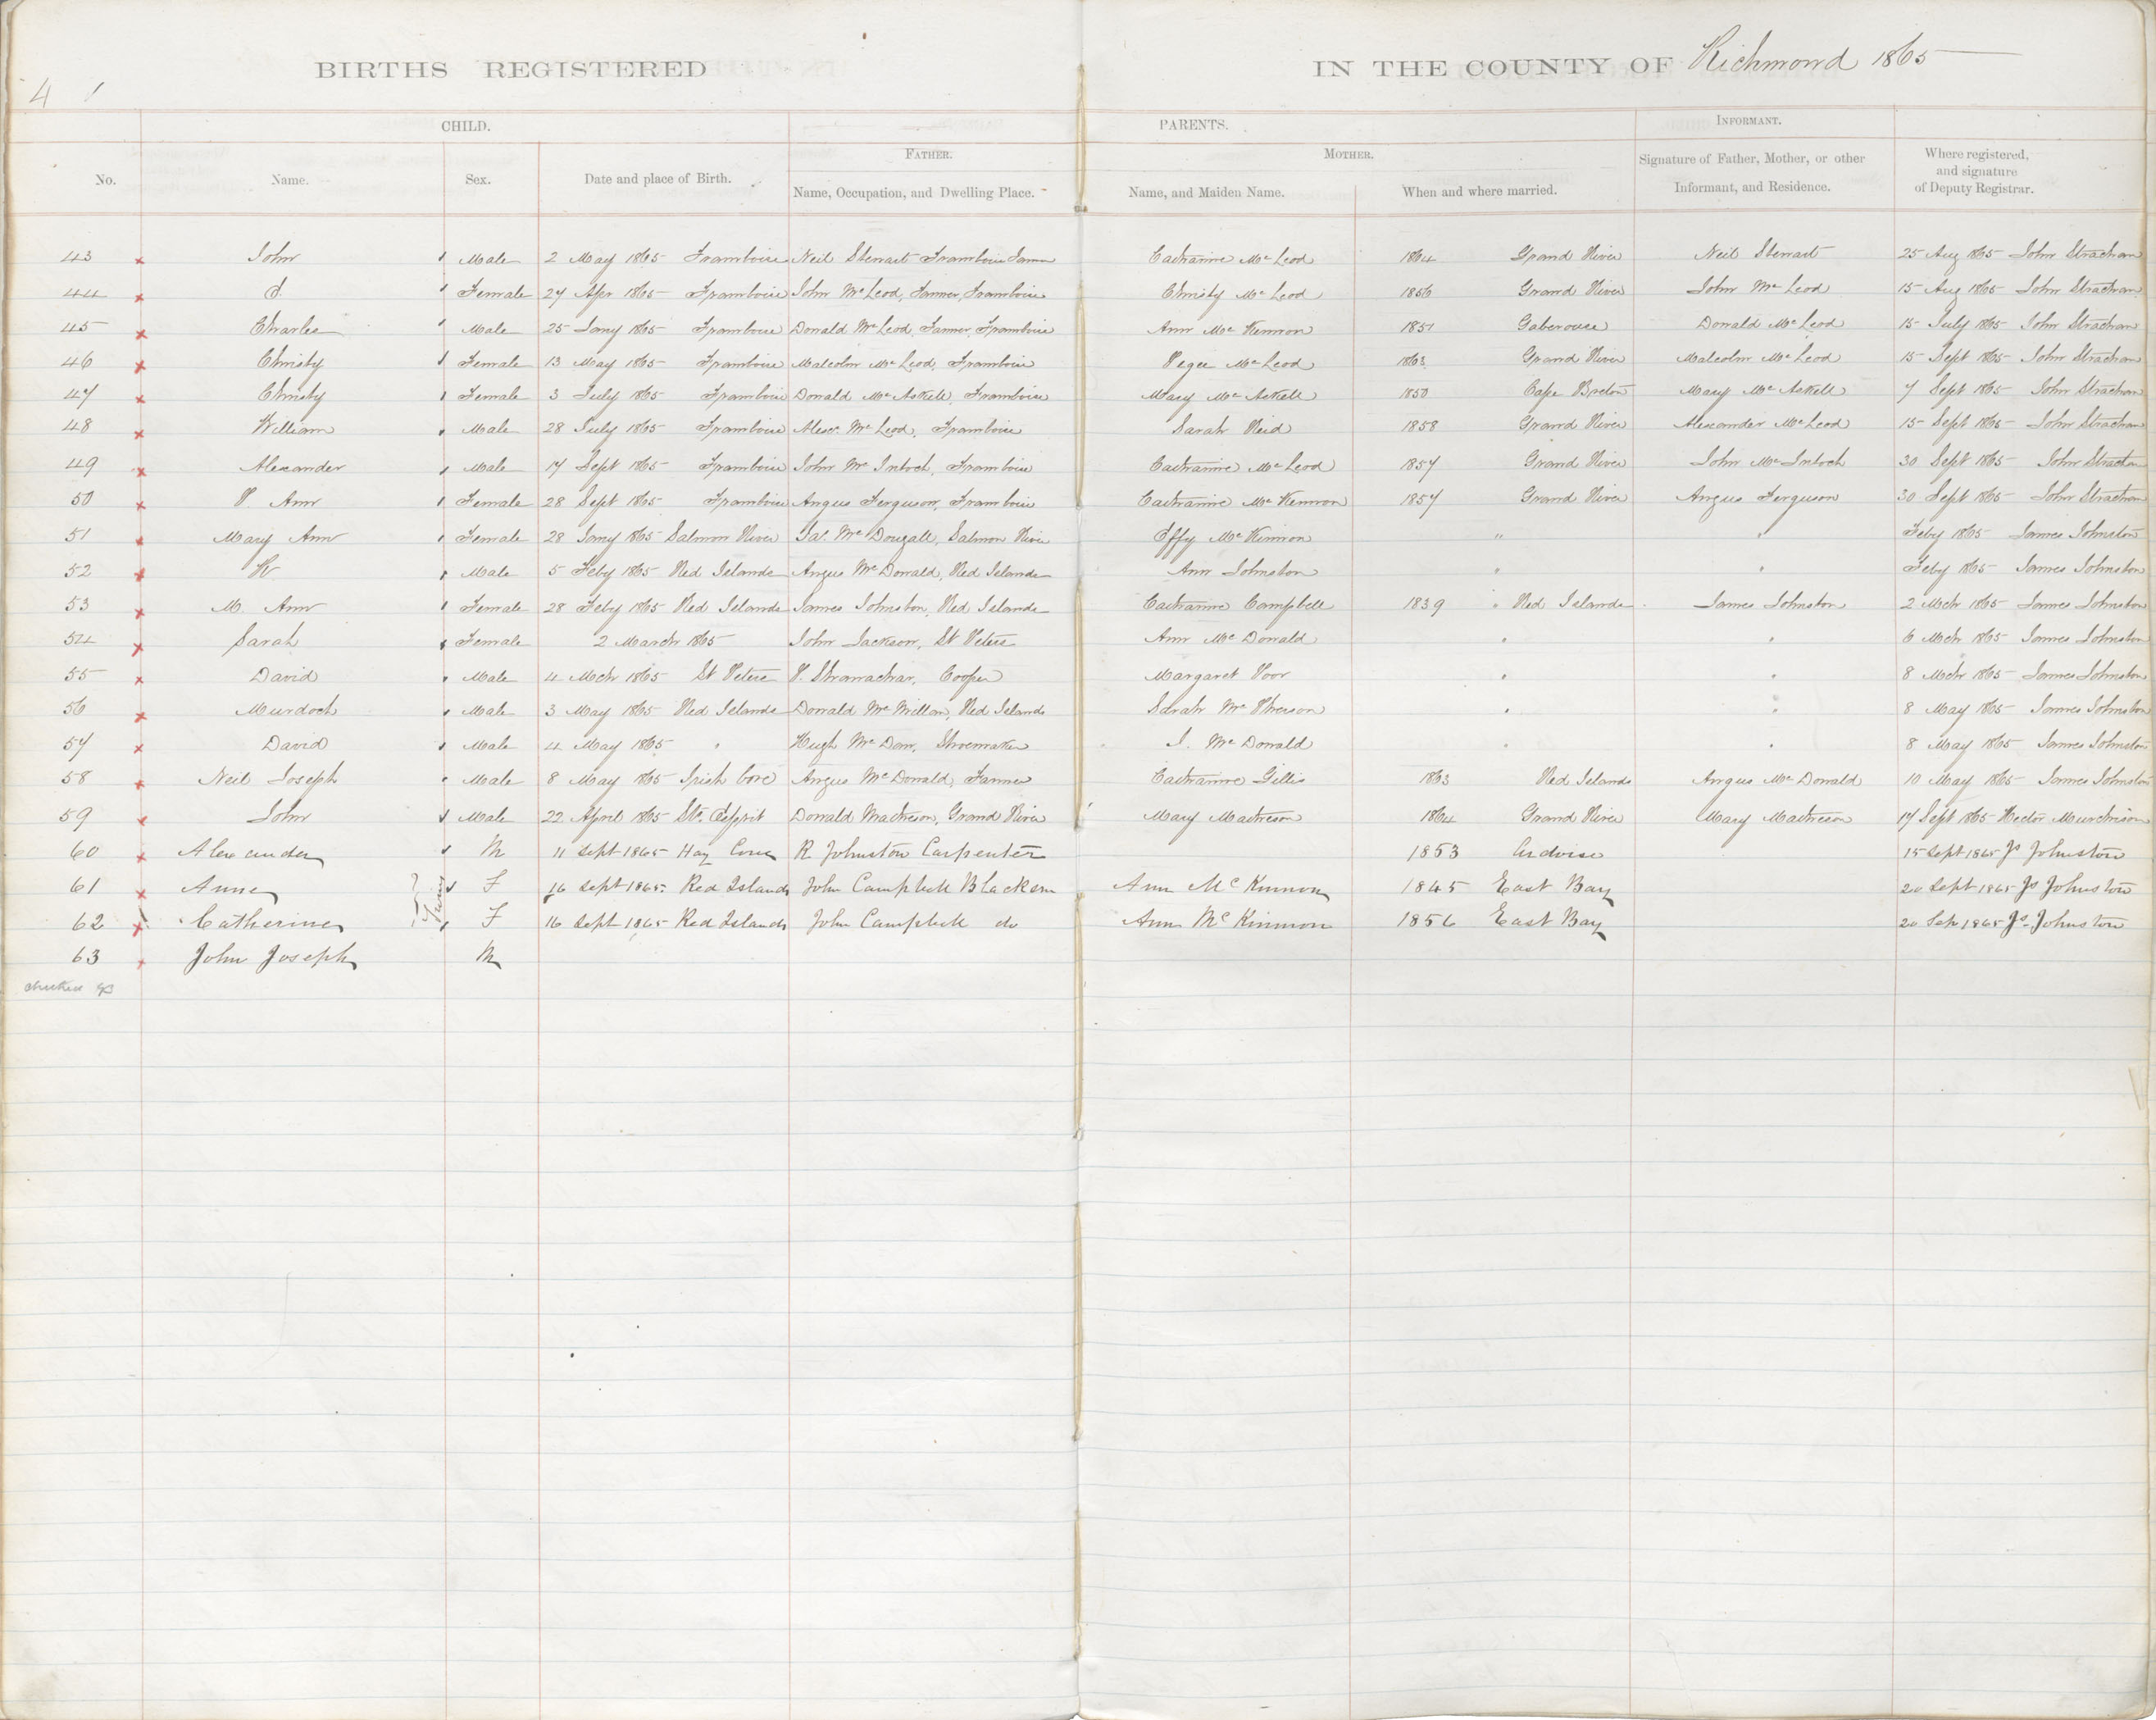 BIRTHS REGISTERED IN THE COUNTY OF Richmond 1865
4
CHILD. PARENTS. INFORMANT.
FATHER. MOTHER.
No. Name. Sex. Date and place of Birth. Name, Occupation, and Dwelling Place. Name, and Maiden Name. When and where married. Signature of Father, Mother, or other Informant, and Residence. Where registered, and signature of Deputy Registrar.
43 John Male 2 May 1865 Framboise Neil Stewart Framboise Farmer Catharine McLeod 1864 Grand River Neil Stewart 25 Aug 1865 John Strachan
44 Female 27 Apr 1865 Framboise John McLeod, Farmer, Framboise Christy McLeod 1856 Grand River John McLeod 15 Aug 1865 John Strachan
45 Charles Male 25 Jany 1865 Framboise Donald McLeod, Farmer, Framboise Ann McKinnon 1851 Gaberouse Donald McLeod 15 July 1865 John Strachan
46 Christy Female 13 May 1865 Framboise Malcolm McLeod, Framboise Pegee McLeod 1863 Grand River Malcolm McLeod 15 Sept 1865 John Strachan
47 Christy Female 3 July 1865 Framboise Donald McAskell, Framboise Mary McAskell 1850 Cape Breton Mary McAskell 7 Sept 1865 John Strachan
48 William Male 28 July 1865 Framboise Alexr McLeod, Framboise Sarah Reid 1858 Grand River Alexander McLeod 15 Sept 1865 John Strachan
49 Alexander Male 17 Sept 1865 Framboise John McIntoch, Framboise Catharine McLeod 1857 Grand River John McIntoch 30 Sept 1865 John Strachan
50 P. Ann Female 28 Sept 1865 Framboise Angus Ferguson, Framboise Catharine McKinnon 1857 Grand River Angus Ferguson 30 Sept 1865 John Strachan
51 Mary Ann Female 28 Jany 1865 Salmon River Jas. McDougall, Salmon River Effy McKinnon " " Feby 1865 James Johnston
52 Male 5 Feby 1865 Red Islands Angus McDonald, Red Islands Ann Johnston " " Feby 1865 James Johnston
53 M. Ann Female 28 Feby 1865 Red Islands James Johnston, Red Islands Catharine Campbell 1839 " Red Islands James Johnston 2 Mch 1865 James Johnston
54 Sarah Female 2 March 1865 John Jackson, St Peters Ann McDonald " " 6 Mch 1865 James Johnston
55 David Male 4 Mch 1865 St Peters P. Strawachar, Cooper Margaret Poor " " 8 Mch 1865 James Johnston
56 Murdoch Male 3 May 1865 Red Islands Donald McMillan, Red Islands Sarah McPherson " " 8 May 1865 James Johnston
57 David Male 4 May 1865 " Hugh McDon, Shoemaker J. McDonald " " 8 May 1865 James Johnston
58 Neil Joseph Male 8 May 1865 Irish Cove Angus McDonald, Farmer Catharine Gillis 1863 Red Islands Angus McDonald 10 May 1865 James Johnston
59 John Male 22 April 1865 St. Esprit Donald Matheson, Grand River Mary Matheson 1864 Grand River Mary Matheson 17 Sept 1865 Hector Murchison
60 Alexander M 11 Sept 1865 Hay Cove R. Johnston Carpenter 1853 Ardoise 15 Sept 1865 Js Johnston
61 Anne Twins F 16 Sept 1865 Red Islands John Campbell Blacksm Ann McKinnon 1845 East Bay 20 Sept 1865 Js Johnston
62 Catherine F 16 Sept 1865 Red Islands John Campbell do Ann McKinnon 1856 East Bay 20 Sep 1865 Js. Johnston
63 John Joseph M
checked